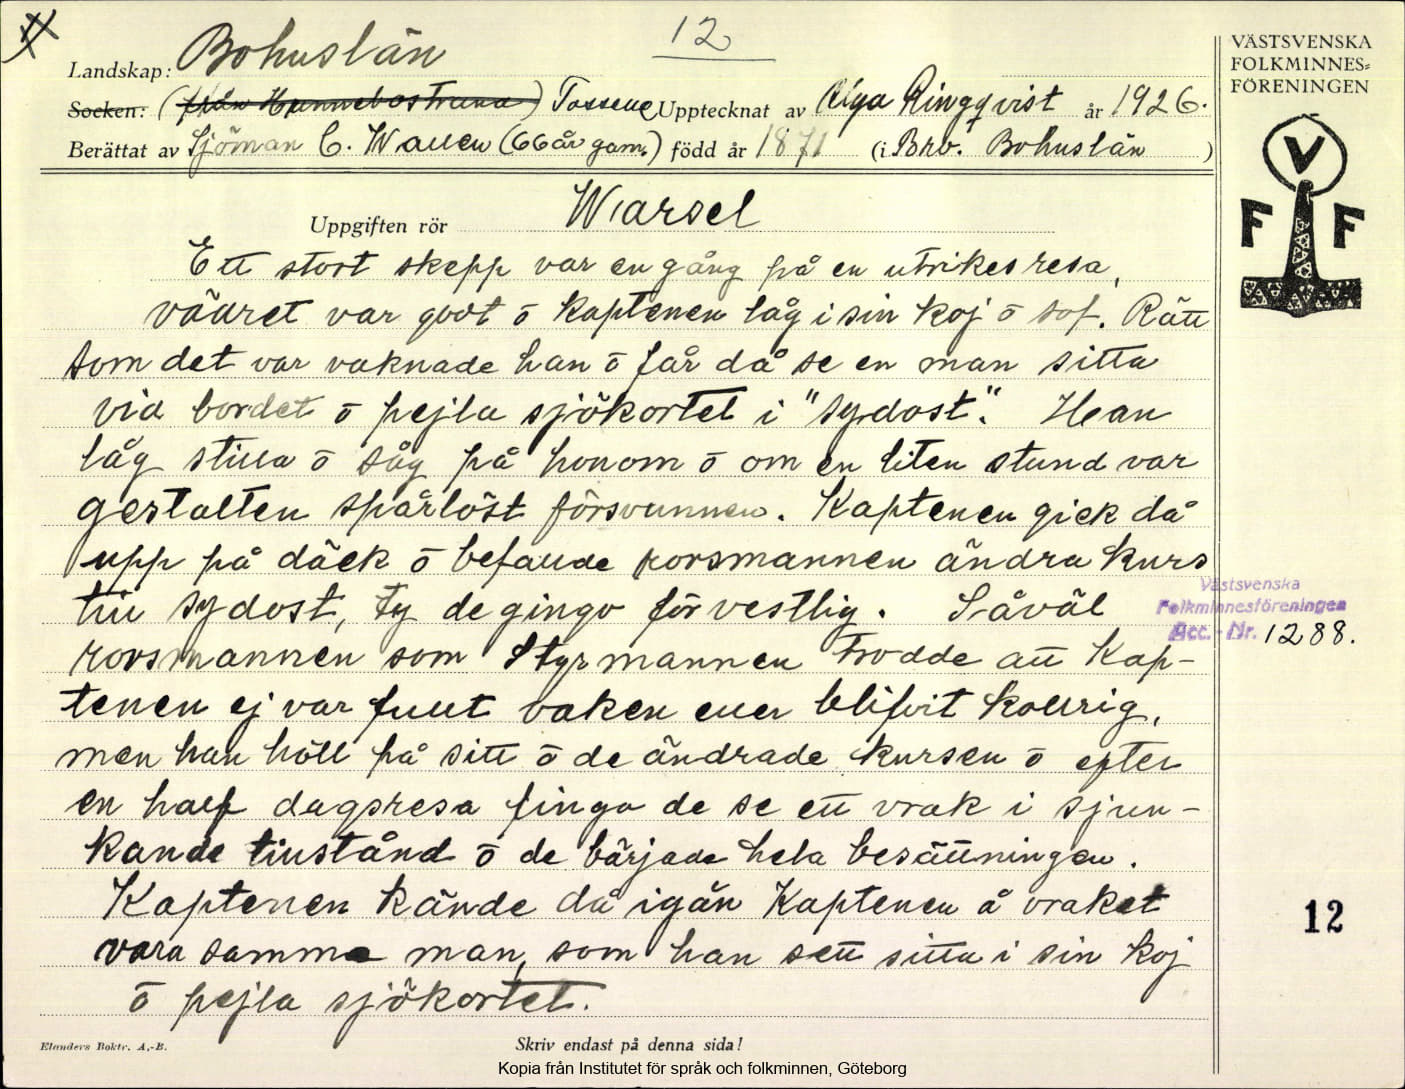 12
VÄSTSVENSKA
FOLKMINNES=
FÖRENINGEN
Landskap: Bohuslän
Socken: (från Hunnebostrand) Tossene Upptecknat av Olga Ringqvist år 1926.
Berättat av Sjöman C. Wallen (66 år gam.) född år 1871 (i Brb. Bohuslän )
V
F F
Uppgiften rör Warsel
Ett stort skepp var en gång på en utrikesresa,
vädret var godt ō kaptenen låg i sin koj ō sof. Rätt
som det var vaknade han ō får då se en man sitta
vid bordet ō pejla sjökortet i "sydost". Han
låg stilla ō såg på honom ō om en liten stund var
gestalten spårlöst försvunnen. Kaptenen gick då
upp på däck ō befallde rorsmannen ändra kurs
till sydost, ty de gingo för vestlig. Såväl
rorsmannen som Styrmannen trodde att Kap-
tenen ej var fullt vaken eller blifvit kollrig,
men han höll på sitt ō de ändrade kursen ō efter
en half dagsresa fingo de se ett vrak i sjun-
kande tillstånd ō de bärjade hela besättningen.
Kaptenen kände då igån Kaptenen å vraket
vara samma man, som han sett sitta i sin koj
ō pejla sjökortet.
Västsvenska
Folkminnesföreningen
Acc.-Nr. 1288.
12
Elanders Boktr. A.-B.
Skriv endast på denna sida!
Kopia från Institutet för språk och folkminnen, Göteborg